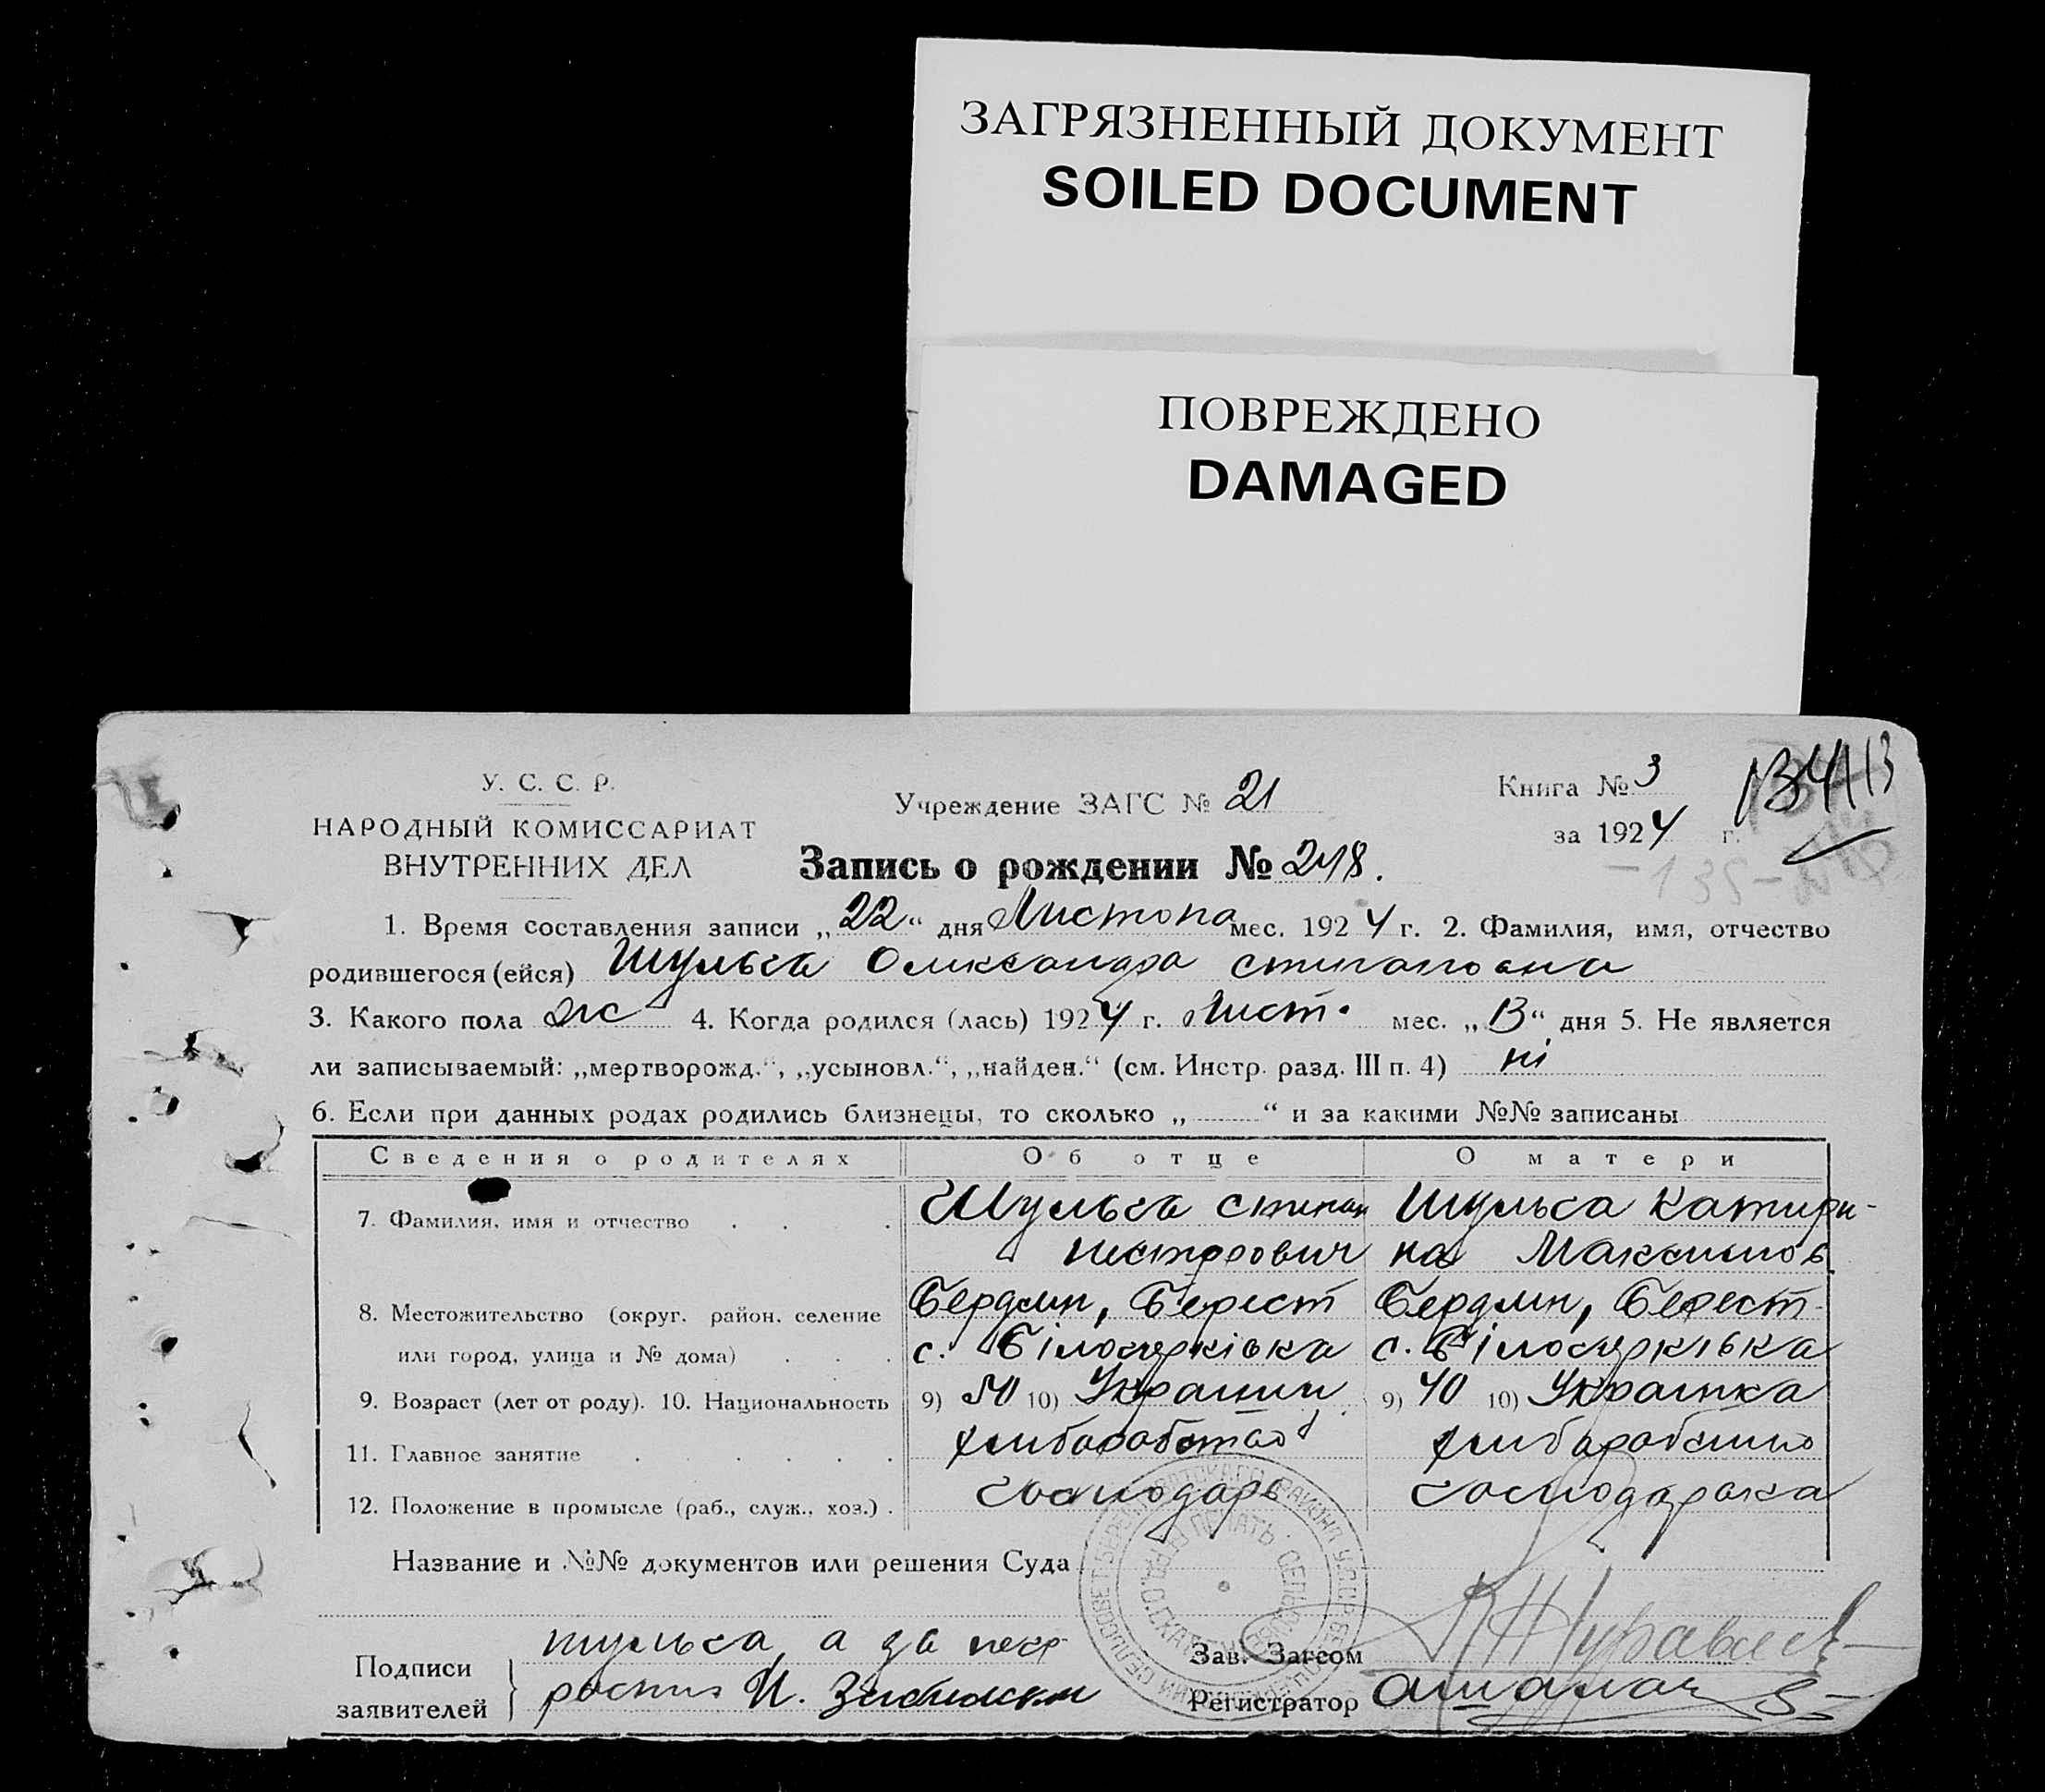 ЗАГРЯЗНЕННЫЙ ДОКУМЕНТ
SOILED DOCUMENT
ПОВРЕЖДЕНО
DAMAGED
У. С. С. Р.
НАРОДНЫЙ КОМИССАРИАТ
ВНУТРЕННИХ ДЕЛ
Учреждение ЗАГС № 21
Книга № 3
за 1924 г.
Запись о рождении № 248.
1. Время составления записи „22“ дня Листопа мес. 1924 г. 2. Фамилия, имя, отчество
родившегося (ейся) Шульга Олександра
3. Какого пола ж 4. Когда родился (лась) 1924 г. Лист. мес. „13“ дня 5. Не является
ли записываемый: „мертворожд.“, „усыновл.“, „найден.“ (см. Инстр. разд. III п. 4) ні
6. Если при данных родах родились близнецы, то сколько „ “ и за какими №№ записаны
Сведения о родителях Об отце О матери
7. Фамилия, имя и отчество Шульга Степан Шульга Катери-
несторович на Максимов.
8. Местожительство (округ, район, селение Бердян, Берест Бердян, Берест
или город, улица и № дома) с. Білоцерківка с. Білоцерківка
9. Возраст (лет от роду). 10. Национальность 9) 50 10) Украинец 9) 40 10) Украинка
11. Главное занятие
12. Положение в промысле (раб., служ., хоз.) господарь господарька
Название и №№ документов или решения Суда
Подписи заявителей
шульга, а за негр
роспис И.
Зав. Загсом
Регистратор